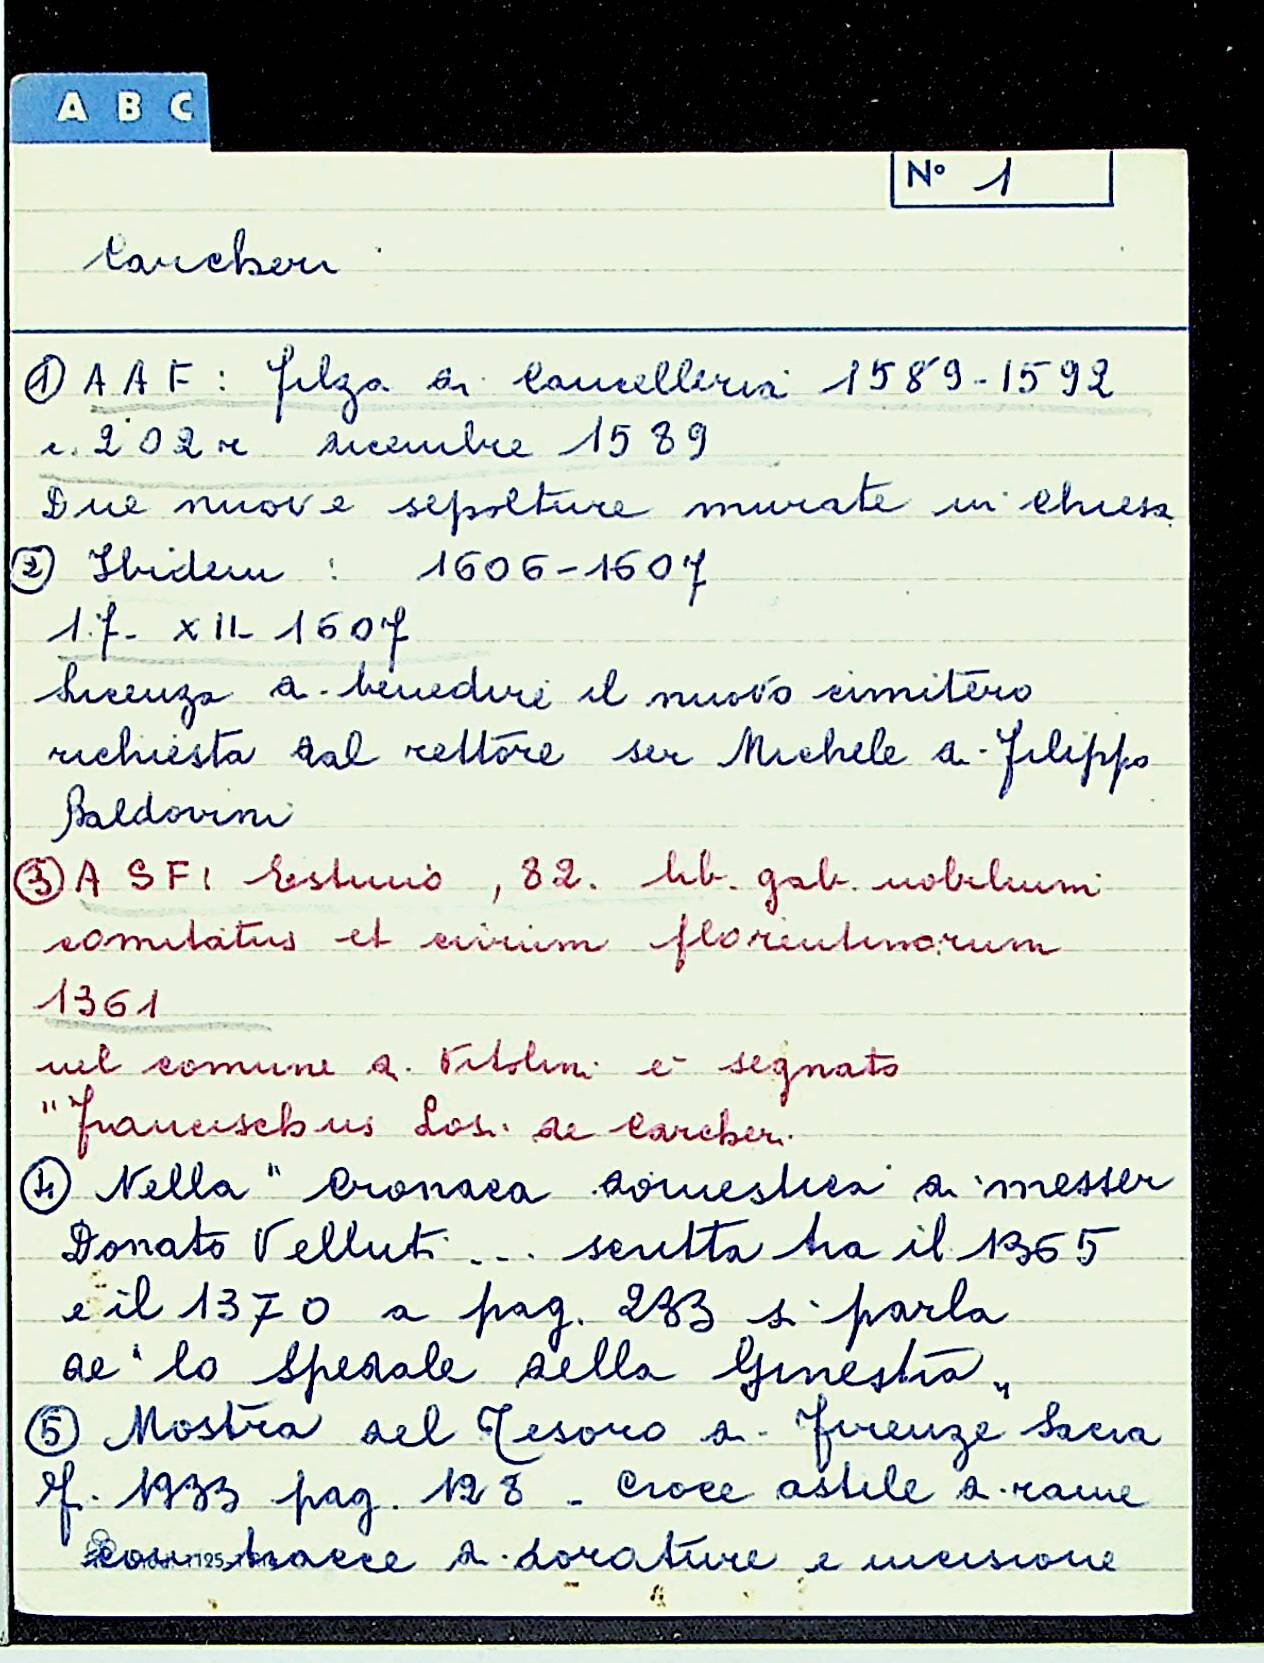 A B C
N° 1
Carcheri
① A A F : filza di Cancelleria 1589-1592
c. 202 r dicembre 1589
Due nuove sepolture murate in chiesa
② Ibidem : 1606-1607
17- XII 1607
licenza di benedire il nuovo cimitero
richiesta dal rettore ser Michele di Filippo
Baldovini
③ A S F: Estimo, 82. lib. gab. nobilium
comitatus et civium florentinorum
1361
nel comune di Vitolini è segnato
"Francischus Losi de Carcheri
④ Nella "Cronaca domestica di messer
Donato Velluti ... scritta tra il 1365
e il 1370 a pag. 233 si parla
de "lo Spedale della Ginestra"
⑤ Mostra del Tesoro di Firenze Sacra
F. 1933 pag. 128 - Croce astile di rame
con tracce di dorature e incisione